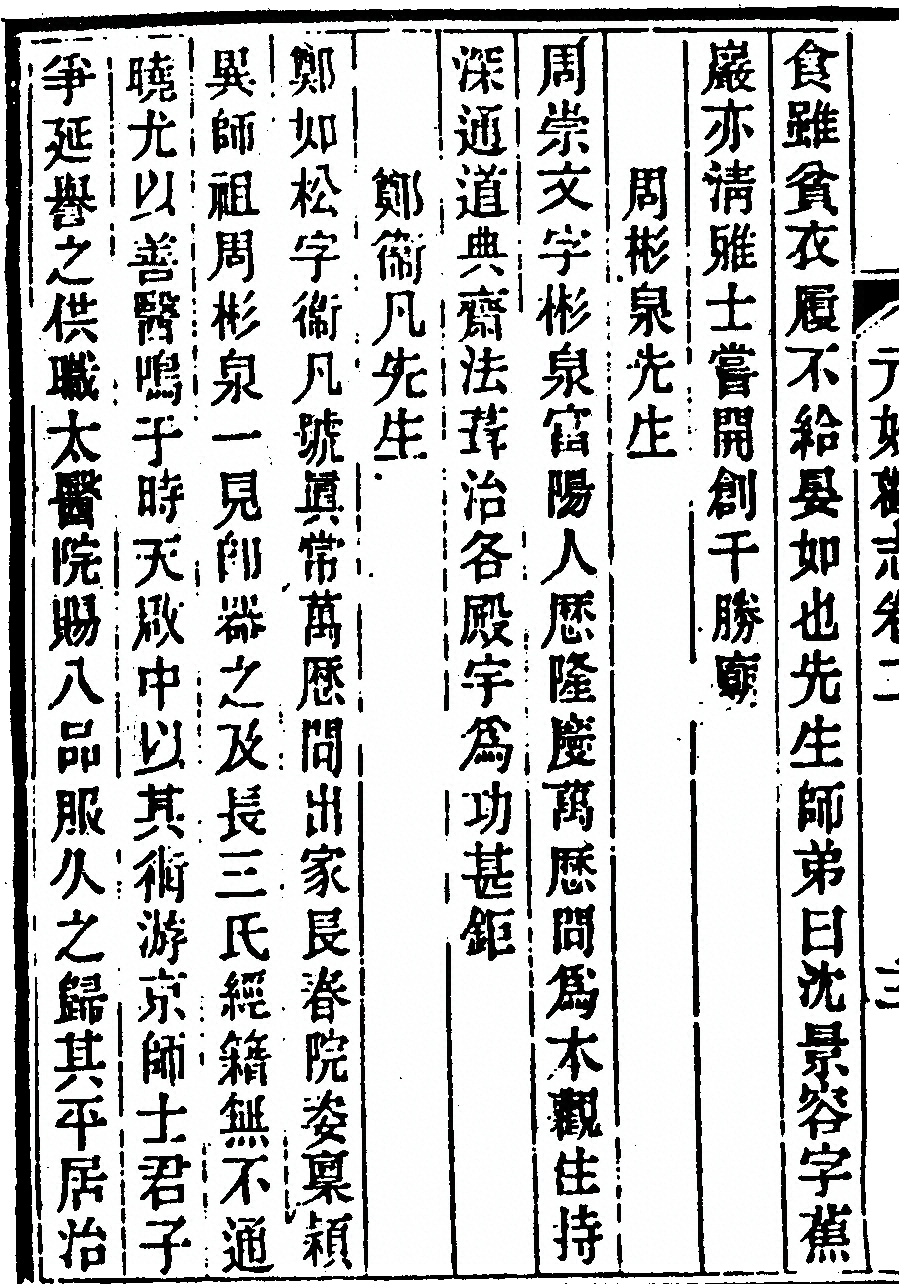 元妙觀志卷二 三
食雖貧衣履不給晏如也先生師弟曰沈景容字蕉
巖亦淸雅士嘗開創千勝廟
周彬泉先生
周崇文字彬泉富陽人歷隆慶萬歷間爲本觀住持
深通道典齋法葺治各殿宇爲功甚鉅
鄭衞凡先生
鄭如松字衞凡號眞常萬歷間出家長春院姿稟穎
異師祖周彬泉一見卽器之及長三氏經籍無不通
曉尤以善醫鳴于時天啟中以其術游京師士君子
爭延譽之供職太醫院賜八品服久之歸其平居治